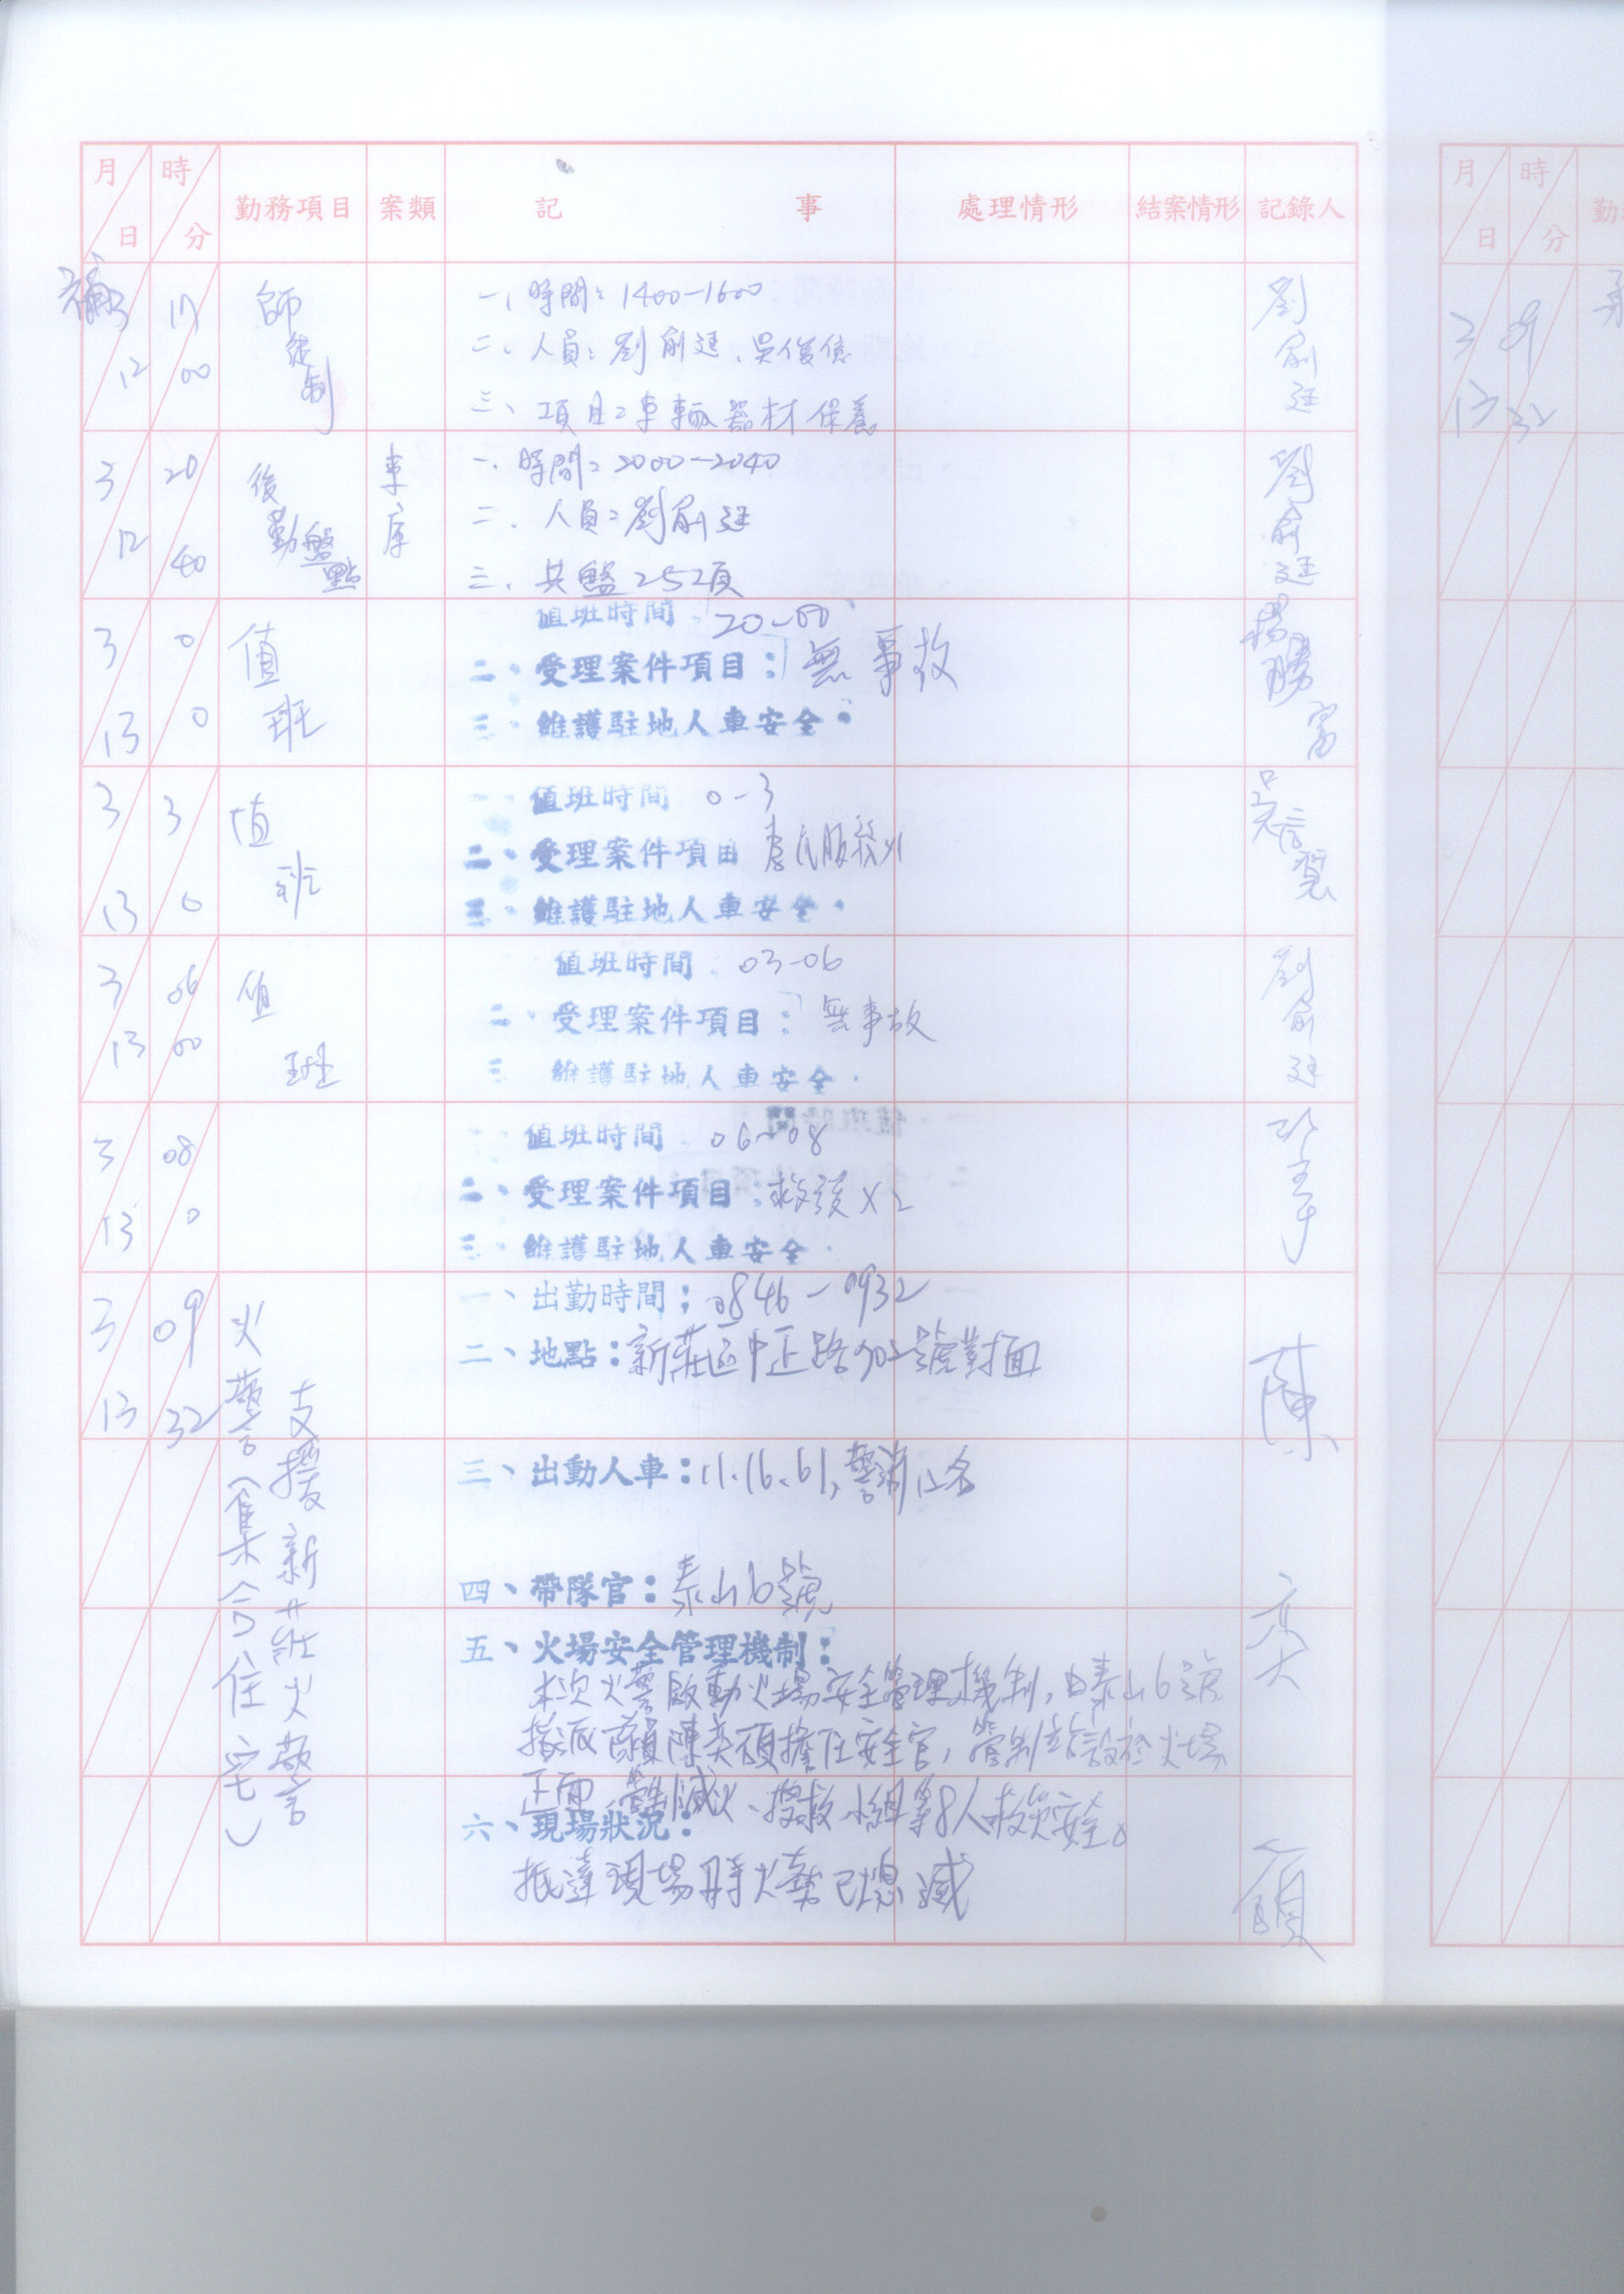 月 日 時 分 勤務項目 案類 記 事 處理情形 結案情形 記錄人
補
3 12 17 00 師徒制
一、時間：1400-1600
二、人員：劉俞廷、吳俊億
三、項目：車輛器材保養
劉俞廷
3 12 20 40 後勤盤點 車庫
一、時間：2000-2040
二、人員：劉俞廷
三、共盤252項
劉俞廷
3 13 0 0 值班
值班時間 20-00
二、受理案件項目：無事故
三、維護駐地人車安全。
楊勝富
3 13 3 0 值班
一、值班時間 0-3
二、受理案件項目 為民服務x1
三、維護駐地人車安全。
3 13 06 00 值班
值班時間 03-06
二、受理案件項目：無事故
三、維護駐地人車安全。
劉俞廷
3 13 08 0
值班時間 06-08
二、受理案件項目：救護x2
三、維護駐地人車安全。
3 13 09 32 火警(集合住宅) 支援新莊火警
一、出勤時間：0846-0932
二、地點：新莊區中正路902號對面
三、出動人車：11、16、61，警消
四、帶隊官：泰山6號
五、火場安全管理機制：
本次火警啟動火場安全管理機制，由泰山6號
指派隊員陳奕碩擔任安全官，管制站設於火場
正面，管制滅火、搜救小組等8人救災安全。
六、現場狀況：
抵達現場時火勢已熄滅
陳奕碩
月 日 時 分 勤
3 13 09 32